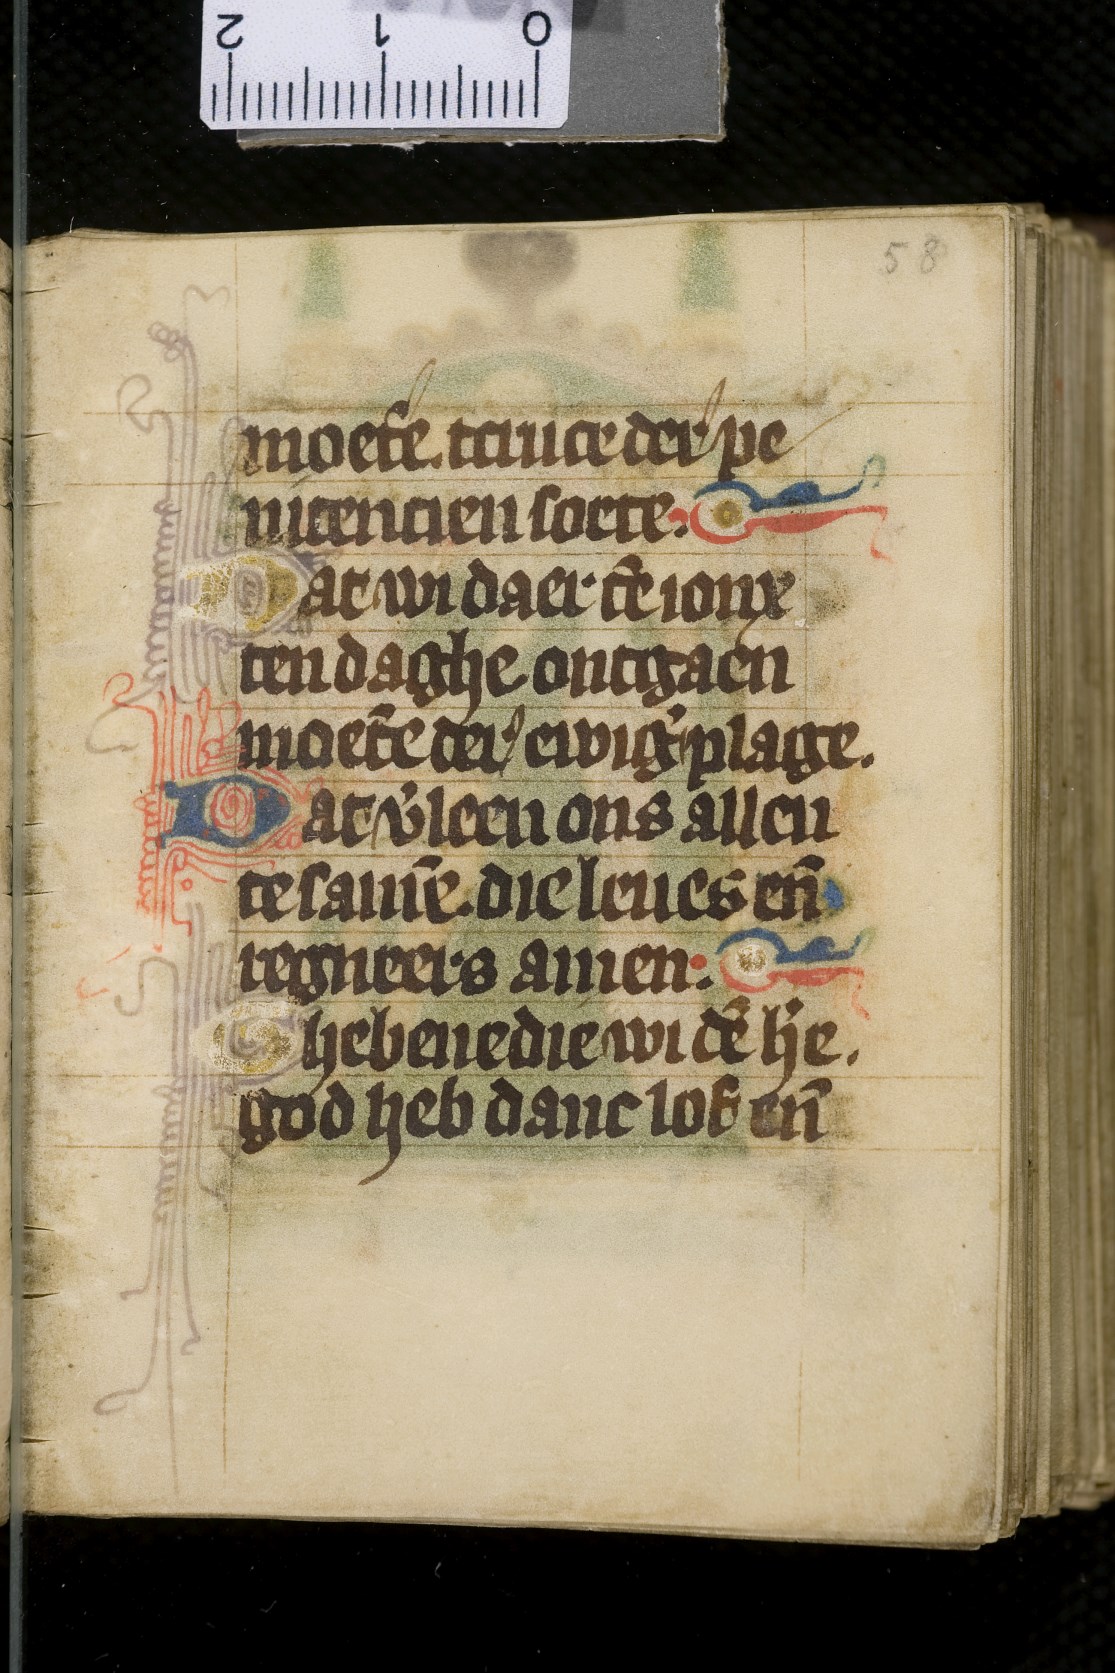 2 1 0
58
moetē. tcruce der pe
nitencien soete.
Dat wi daer tē ionx
ten daghe ontgaen
moetē der ewig' plage.
Dat v'leen ons allen
te samē. die leues eñ
regneers amen.
Ghebenedie wi dē h'e.
god heb danc lof eñ